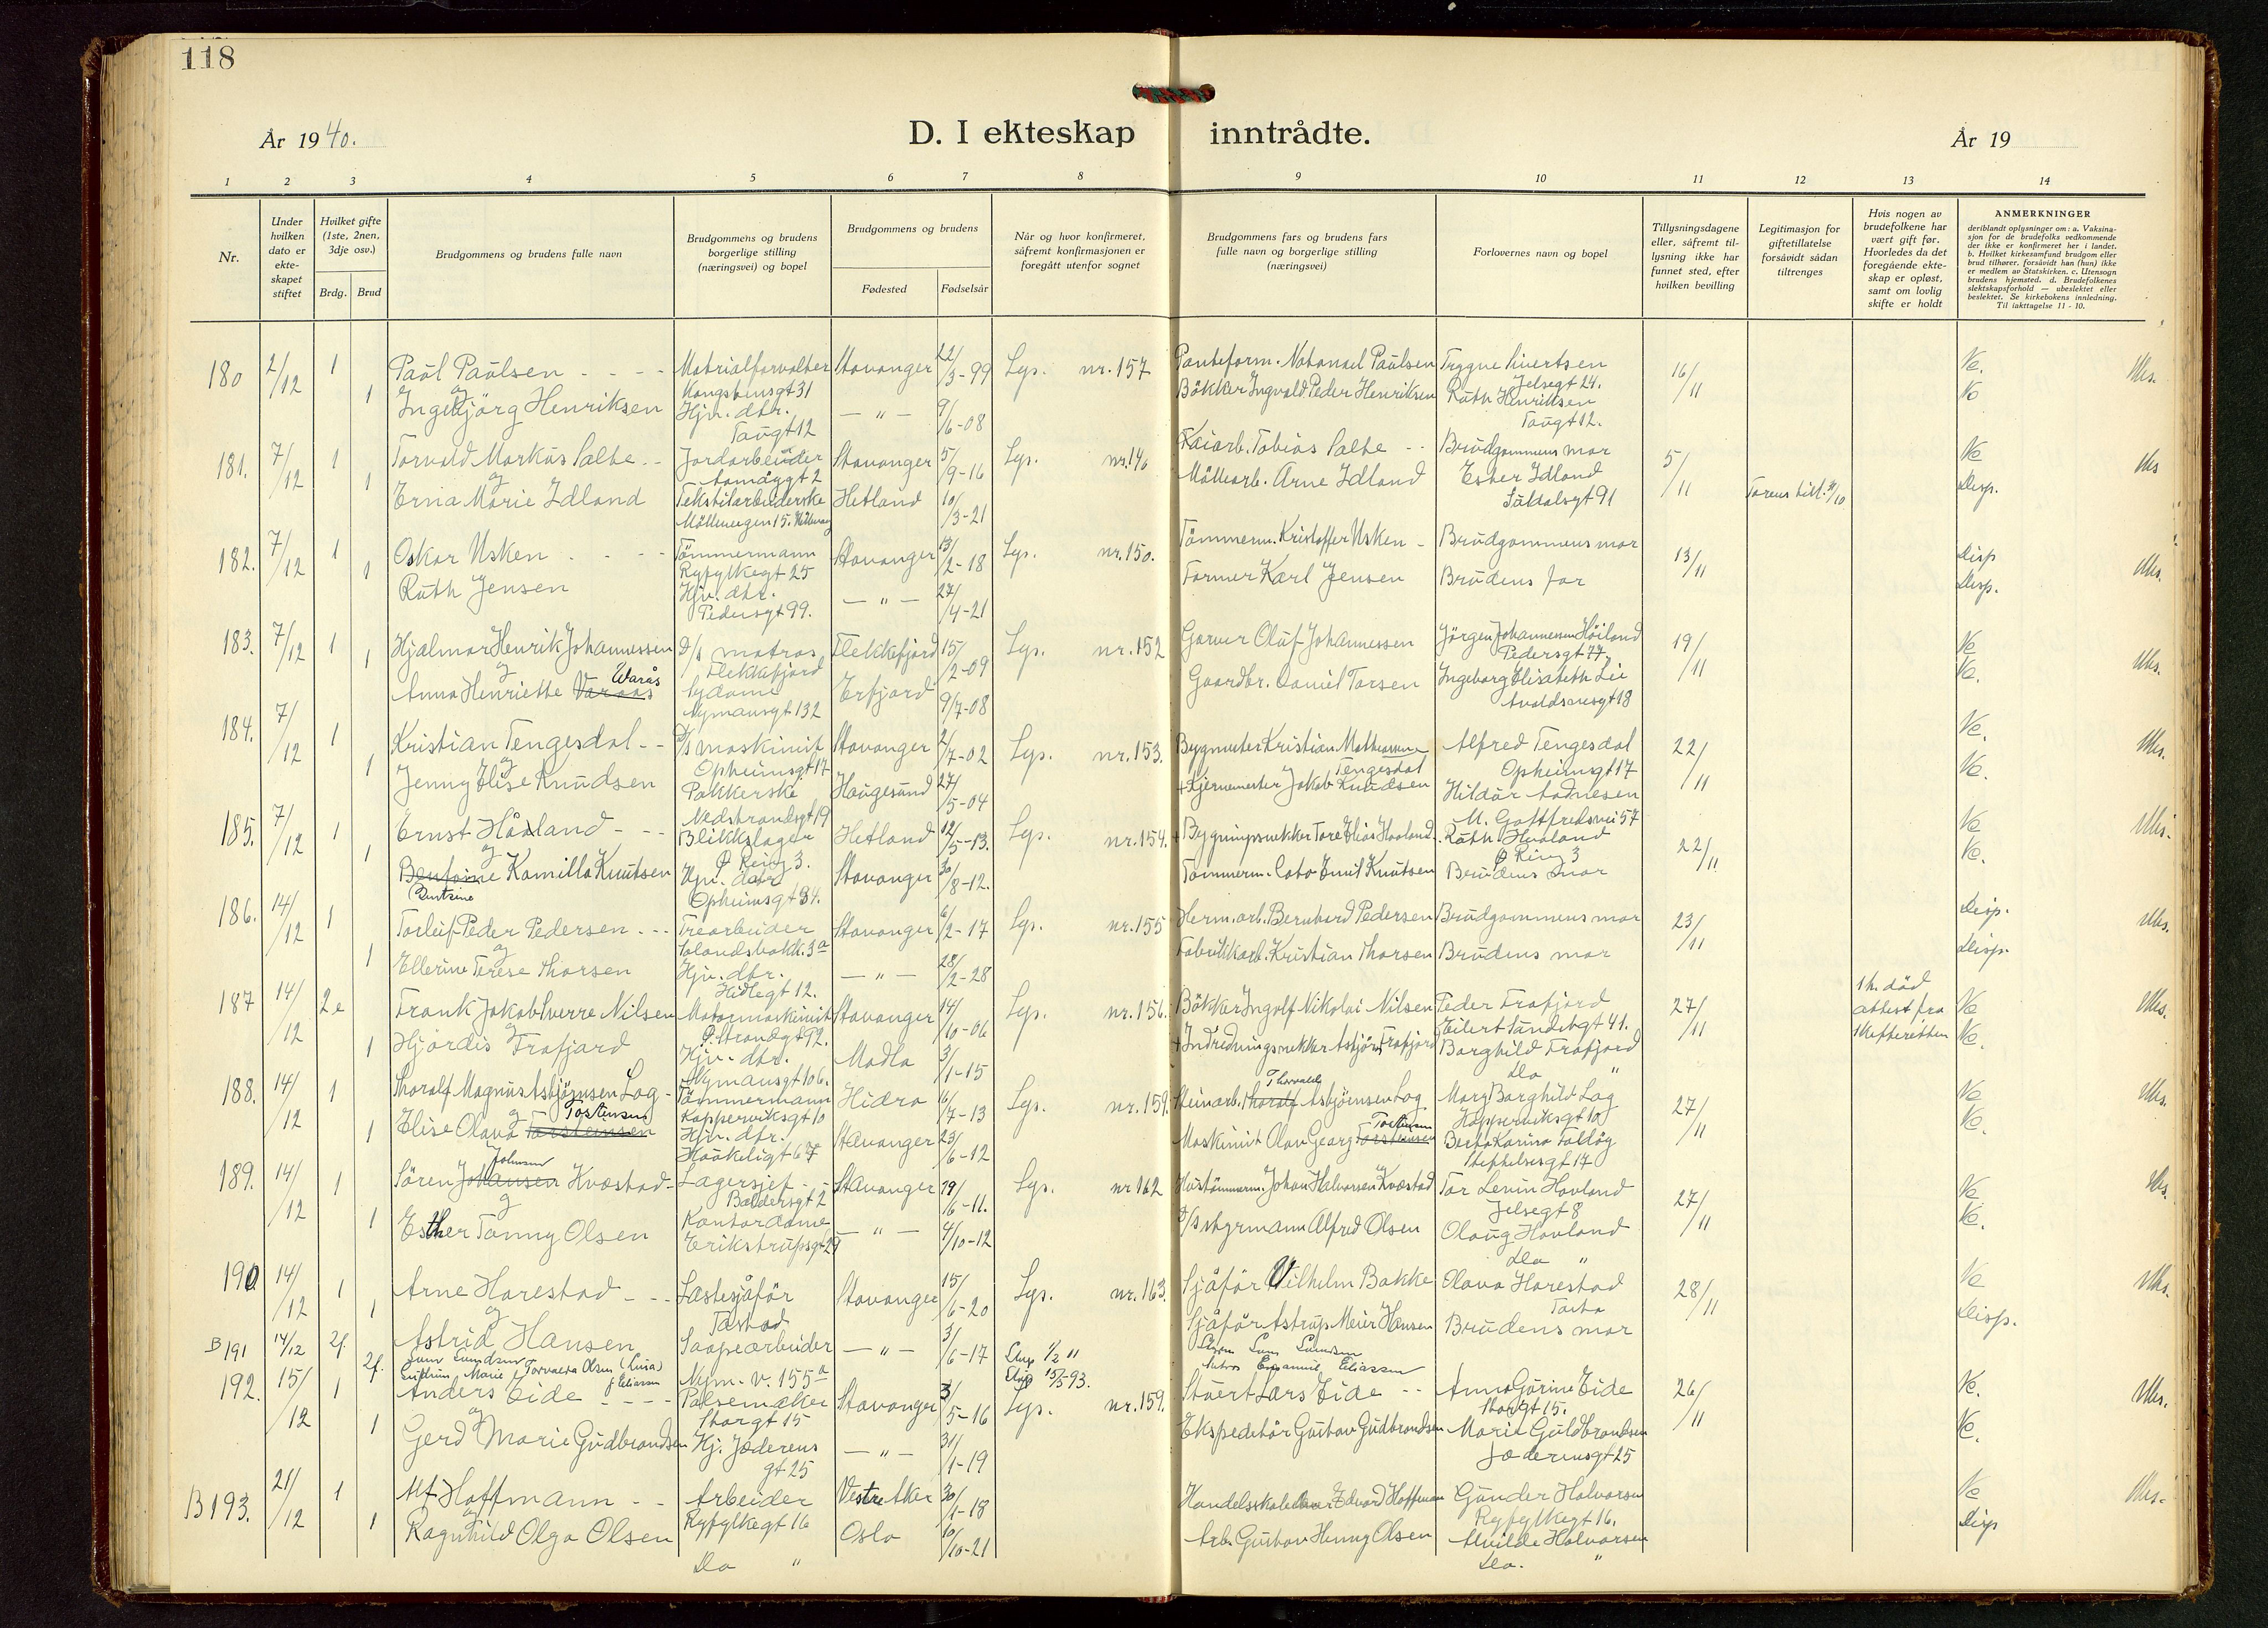 118
År 1940.
D. I ekteskap inntrådte.
År 19
1 2 3 4 5 6 7 8 9 10 11 12 13 14
Nr.
Under hvilken dato er ekte-skapet stiftet
Hvilket gifte (1ste, 2nen, 3dje osv.)
Brdg. Brud
Brudgommens og brudens fulle navn
Brudgommens og brudens borgerlige stilling (næringsvei) og bopel
Brudgommens og brudens
Fødested Fødselsår
Når og hvor konfirmeret, såfremt konfirmasjonen er foregått utenfor sognet
Brudgommens fars og brudens fars fulle navn og borgerlige stilling (næringsvei)
Forlovernes navn og bopel
Tillysningsdagene eller, såfremt til-lysning ikke har funnet sted, efter hvilken bevilling
Legitimasjon for giftetillatelse forsåvidt sådan tiltrenges
Hvis nogen av brudefolkene har vært gift før. Hvorledes da det foregående ekte-skap er opløst, samt om lovlig skifte er holdt
ANMERKNINGER
deriblandt oplysninger om: a. Vaksina-sjon for de brudefolks vedkommende der ikke er konfirmeret her i landet. b. Hvilket kirkesamfund brudgom eller brud tilhører, forsåvidt han (hun) ikke er medlem av Statskirken. c. Utensogn brudens hjemsted. d. Brudefolkenes slektskapsforhold — ubeslektet eller beslektet. Se kirkebokens innledning. Til iakttagelse 11 - 10.
180 2/12 1 Paul Paulsen - - - - Matrialforvalter Stavanger 22/3-99 Lys. nr. 157 Nathanael Paulsen Trygve Sivertsen 16/11 Ve.
og Kongsteinsgt 31 Jelsegt 24.
1 Ingebjörg Henriksen Hjv. dtr. — " — 9/6-08 Bökker Ingvald Peder Henriksen Ruth Henriksen
Taugt 12 Taugt 12.
181. 7/12 1 Torvald Markus Salte - - Jordarbeider Stavanger 5/9-16 Lys. nr. 140 Kaiarb. Tobias Salte - - Brudgommens mor 5/11 Ve
og
1 Erna Marie Idland Tekstilarbeiderske Hetland 10/3-21 Möllearb. Arne Idland Ester Idland Disp.
182. 7/12 1 Oskar Usken - - - - Tömmermann Stavanger 13/2-18 Lys. nr. 150. Tömmerm. Kristoffer Usken - Brudgommens mor 13/11 Disp
Ryfylkegt 25
1 Ruth Jensen Hjv. dtr. — " — 27/4-21 Former Karl Jensen Brudens far Disp.
Pedersgt 99.
183. 7/12 1 Hjalmar Henrik Johannessen D/s matros Flekkefjord 15/2-09 Lys. nr. 152 Garver Oluf Johannessen Jörgen Johannessen Höiland 19/11 Ve
og Flekkefjord Pedersgt 77.
1 Anna Henriette Varaas Warås Sydame Erfjord 9/7-08 Gaardbr. Daniel Torsen Ingeborg Elisabeth Lie Ve.
Nymansgt 132
184. 7/12 1 Kristian Tengesdal - - D/s maskinist Stavanger 2/7-02 Lys. nr. 153. Bygmester Kristian Tengesdal Alfred Tengesdal 22/11 Ve.
og Opheimsgt 17 Opheimsgt 17
1 Jenny Elise Knudsen Pakkerske Haugesund 27/5-04 Jakob Knudsen Hildur Aadnesen Ve.
Nedstrandsgt 19 57
185. 7/12 1 Ernst Håaland - - - Blikkslager Hetland 12/5-13. Lys. nr. 154. Bygningssnekker Tore Elias Haaland Ruth Haaland 22/11 Ve
og Ö Ring 3. Ö Ring 3
1 Bentsine Kamilla Knutsen Hjv. dtr. Stavanger 30/8-12. Tömmerm. Emil Knutsen Brudens mor Ve.
Opheimsgt 34.
186. 14/12 1 Torleif Peder Pedersen - - - Trearbeider Stavanger 6/2-17 Lys. nr. 155 Herm. arb. Bernhard Pedersen Brudgommens mor 23/11 Disp.
og
1 Ellerine Terese Thorsen Hjv. dtr. — " — 28/2-28 Fabrikkarb. Kristian Thorsen Brudens mor Disp.
Hidlegt 12.
187 14/12 2e Frank Jakob Sverre Nilsen Motormaskinist Stavanger 14/10-06 Lys. nr. 156. Bökker Ingolf Nikolai Nilsen Peder Frafjord 27/11 1 h. död attest fra Skifteretten Ve
og Ö. Strandgt 92. Eilert Sundtsgt 41.
1 Hjördis Frafjord Hjv. dtr. Madla 3/1-15 Frafjord Borghild Frafjord Ve.
Nymansgt 106. Do "
188. 14/12 1 Thoralf Magnus Asbjörnsen Log - Tömmermann Hidra 16/7-13 Lys. nr. 159. Steinarb. Thoralf Thorvald Asbjörnsen Log Mary Borghild Log 27/11 Ve
og Kopperviksgt 10 Kopperviksgt 10
1 Elise Olava Torsteinsen Tostensen Hjv. dtr. Stavanger 23/6-12 Maskinist Olav Georg Torsteinsen Tostensen Ve.
189. 14/12 1 Sören Johansen Johnsen Kvæstad - Lagersjef - - Stavanger 19/6-11. Lys. nr 162 Hustömmerm. Johan Halvorsen Kvæstad Tor Levin Hovland 27/11 Ve
og Baldersgt 2 Jelsegt 8
1 Esther Tonny Olsen Kontordame — " — 4/10-12 D/s styrmann Alfred Olsen Olaug Hovland Ve.
Erikstrupsgt 29 Do "
190 14/12 1 Arne Harestad - - - Lastesjåför Stavanger 15/6-20 Lys. nr. 163. Sjåför Vilhelm Bakke Olava Harestad 28/11 Ve
og Tastad Tasta
1 Astrid Hansen Saapearbeider — " — 3/6-17 Sjåför Astrup Meier Hansen Brudens mor Disp.
Nym. v. 155a
B 191 14/12 2f. 2f.
192. 15/12 1 Anders Eide - - - - Pølsemaker Stavanger 3/5-16 Lys. nr. 159. Stuert Lars Eide - - Anna Gurine Eide 26/11 Ve.
og Storgt 15 Storgt 15.
1 Gerd Marie Gudbrandsen Hj. Jæderens — " — 31/1-19 Ekspeditör Gustav Gudbrandsen Marie Guldbrandsen Ve.
gt 25 Jæderensgt 25
B 193. 21/12 1 Alf Hoffmann - - Arbeider Vestre Aker 30/1-18 Edvard Hoffmann Gunder Halvorsen Ve
og Ryfylkegt 16 Ryfylkegt 16.
1 Ragnhild Olga Olsen Oslo 10/10-21 Arb. Gustav Henny Olsen Alvilde Halvorsen Disp
Do " Do. "